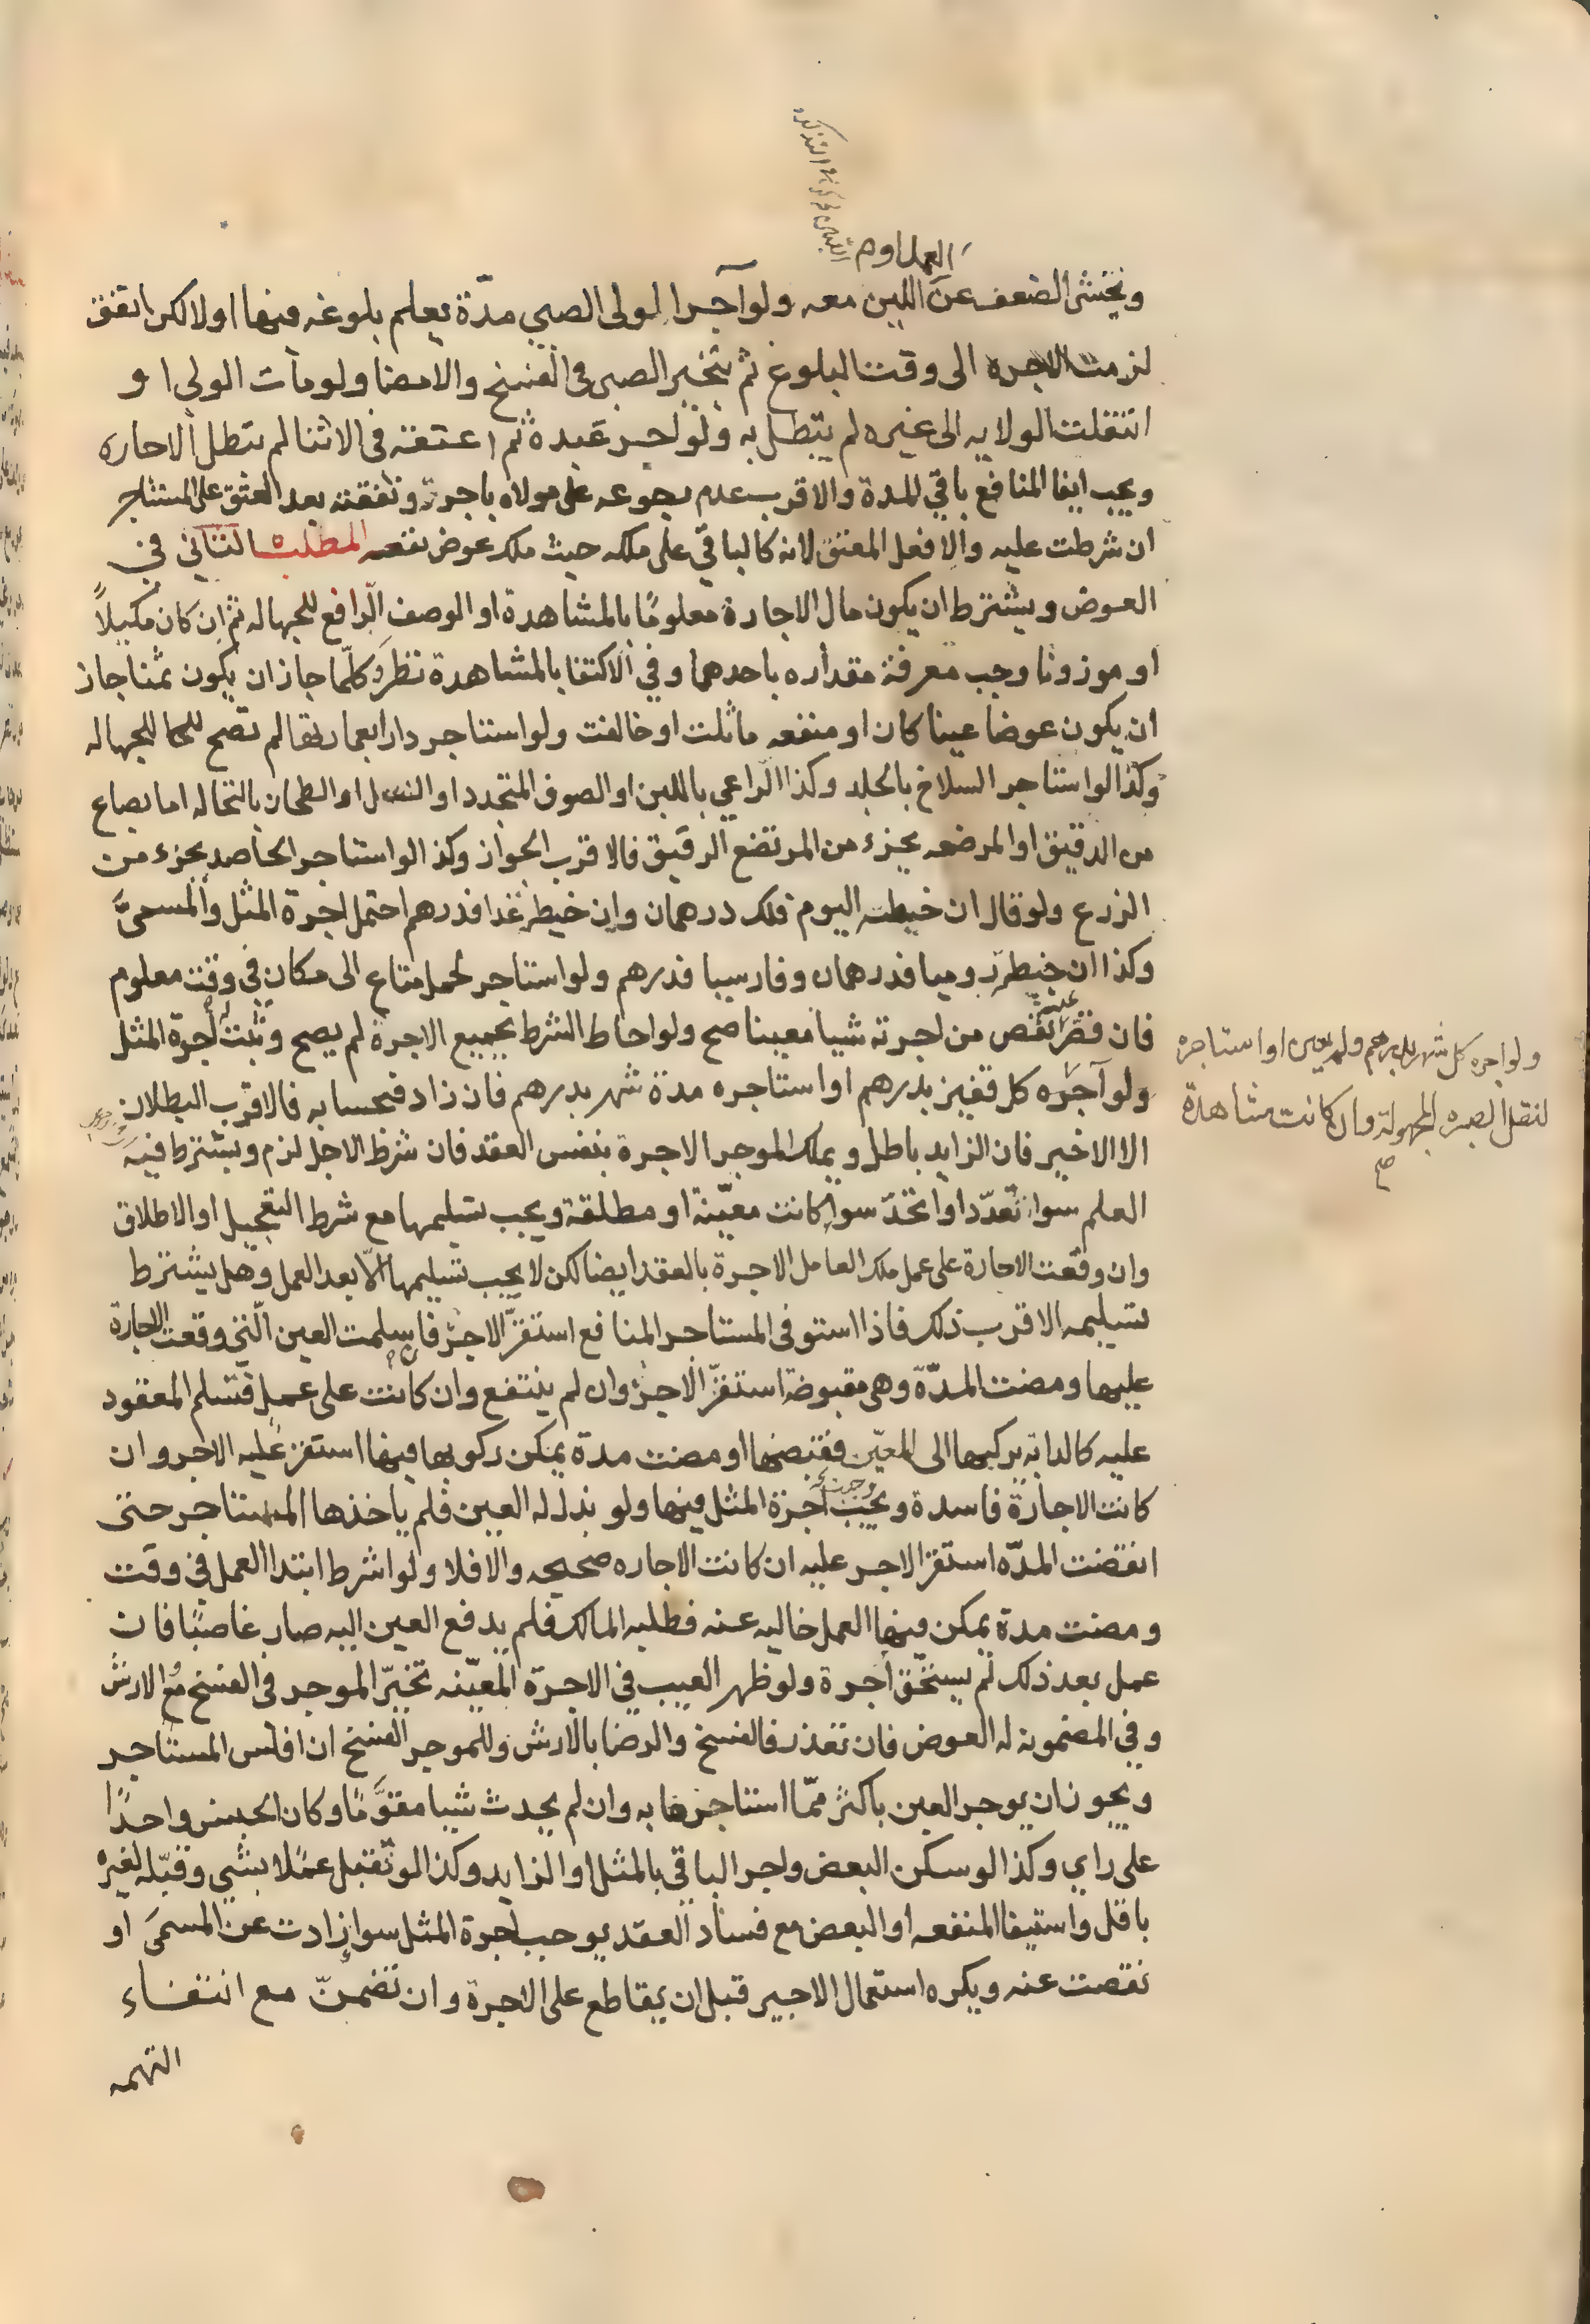 العمل او م
ويخشى الضعف عن اللبن معه ولو آجر الولى الصبي مدّة يعلم بلوغه فيها اولا لكن اتفق
لزمت الاجره الى وقت البلوغ ثم يتخير الصبى فى الفسخ والامضا ولو مات الولى او
انتقلت الولايه الى غيره لم يبطل به ولو اجر عبده ثم اعتقه فى الاثنا لم تبطل الاجاره
ويجب ايفا المنافع باقي المدة والاقرب عدم رجوعه على مولاه باجرة ونفقته بعد العتق على المستاجر
ان شرطت عليه والا فعل المعتق لانه كالباقي على ملكه حيث ملك عوض نفعه المطلب الثاني في
العوض ويشترط ان يكون مال الاجارة معلومًا بالمشاهدة او الوصف الرّافع للجهاله ثم ان كان مكيلاً
او موزونا وجب معرفة مقداره باحدهما وفي الاكتفا بالمشاهدة نظر وكلّما جاز ان يكون ثمنا جاز
ان يكون عوضا عينا كان او منفعه ماثلت او خالفت ولو استاجر دارا بعمارتها لم تصح للجهاله
وكذا لو استاجر السلاخ بالجلد وكذا الرّاعي باللبن او الصوف المتجدد او النسل او الطحان بالنخاله اما بصاع
من الدقيق او المرضعه بجزء من المرتضع الرقيق فالاقرب الجواز وكذا لو استاجر الحاصد بجزء من
الزرع ولو قال ان خيطته اليوم فلك درهمان وان خيطته غدا فدرهم احتمل اجرة المثل والمسمى
وكذا ان خيطته روميا فدرهمان وفارسيا فدرهم ولو استاجر لحمل متاع الى مكان فى وقت معلوم
فان قصر عنه نقص من اجرته شيا معينا صح ولو احاط الشرط بجميع الاجرة لم يصح وثبت له اجرة المثل
ولو اجره كل شهر بدرهم ولم يعين او استاجره
لنقل الصبره المجهولة وان كانت مشاهدة
صح
ولو آجره كل قفيز بدرهم او استاجره مدة شهر بدرهم فان زاد فبحسابه فالاقرب البطلان
الا الاخير فان الزايد باطل ويملك الموجر الاجرة بنفس العقد فان شرط الاجل لزم ويشترط فيه
العلم سوا تعدّد او اتحدّ سوا كانت معيّنة او مطلقة ويجب تسليمها مع شرط التعجيل او الاطلاق
وان وقعت الاجارة على عمل ملك العامل الاجرة بالعقد ايضا لكن لا يجب تسليمها الّا بعد العمل وهل يشترط
تسليمه الاقرب ذلك فاذا استوفى المستاجر المنافع استقرّ الاجر فان سلمت العين الّتى وقعت الاجارة
عليها ومضت المدّة وهى مقبوضة استقرّ الاجر وان لم ينتفع وان كانت على عمل فتسلم المعقود
عليه كالدابة يركبها الى المعيّن فقبضها او مضت مدة يمكن ركوبها فيها استقر عليه الاجر وان
كانت الاجارة فاسدة ويجب اجرة المثل فيها ولو بذل له العين فلم ياخذها المستاجر حتى
انقضت المدّه استقر الاجر عليه ان كانت الاجاره صحيحه والا فلا ولو اشرط ابتدا العمل في وقت
ومضت مدة يمكن فيها العمل خاليه عنه فطلبه المالك فلم يدفع العين اليه صار غاصبًا فان
عمل بعد ذلك لم يستحق اجرة ولو ظهر العيب فى الاجرة المعيّنه تخيّر الموجر فى الفسخ مع الارش
وفى المضمونه له العوض فان تعذر فالفسخ والرضا بالارش وللموجر الفسخ ان افلس المستاجر
ويجوز ان يوجر العين باكثر ممّا استاجرها به وان لم يحدث شيا مقوَّمًا وكان الجنس واحدًا
على راي وكذا لو سكن البعض واجر الباقى بالمثل او الزايد وكذا لو تقبل عملا بشي وقبّله لغيره
باقل واستيفا المنفعه او البعض مع فساد العقد يوجب اجرة المثل سوا زادت عن المسمى او
نقصت عنه ويكره استعمال الاجير قبل ان يقاطع على الاجرة وان تضمنّ مع انتفاء
التهمه